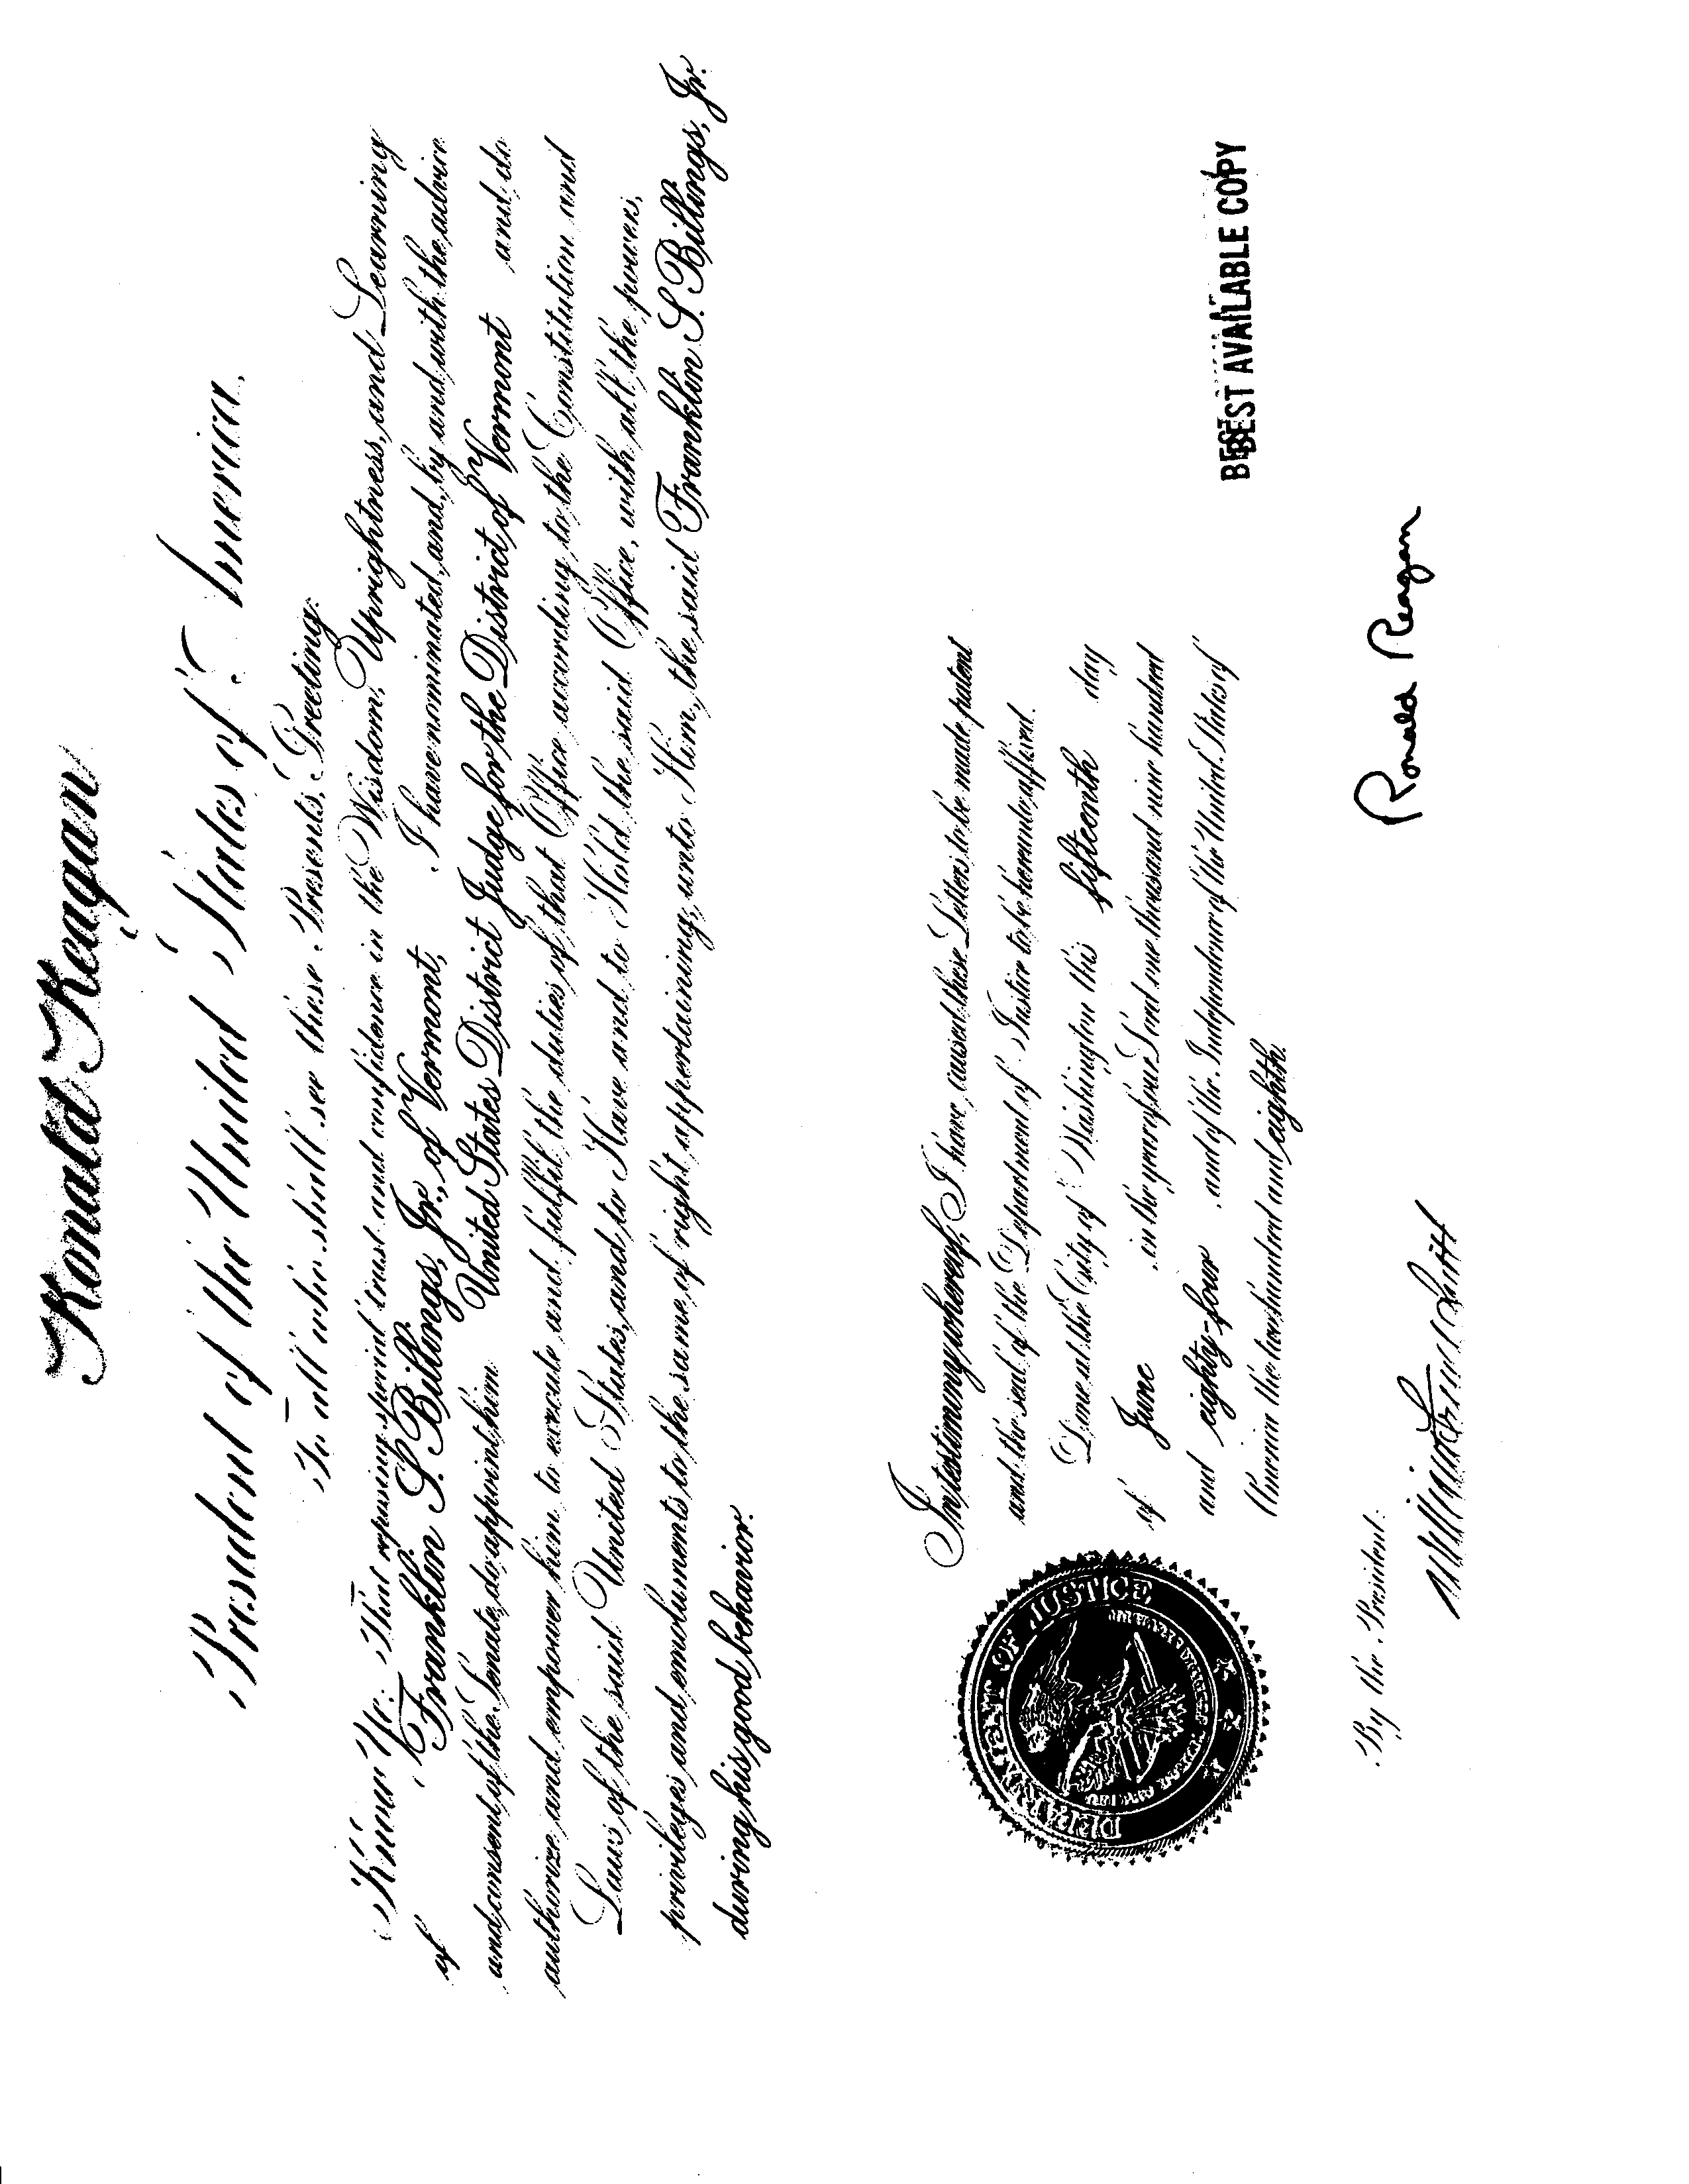 Ronald Reagan
President of the United States of America,
To all who shall see these Presents, Greeting:
Know Ye: That reposing special trust and confidence in the Wisdom, Uprightness, and Learning
of Franklin S. Billings, Jr., of Vermont, I have nominated, and, by and with the advice
and consent of the Senate, do appoint him United States District Judge for the District of Vermont and do
authorize and empower him to execute and fulfil the duties of that Office according to the Constitution and
Laws of the said United States, and to Have and to Hold the said Office, with all the powers,
privileges and emoluments to the same of right appertaining, unto Him, the said Franklin S. Billings, Jr.
during his good behavior.
In testimony whereof, I have caused these Letters to be made patent
and the seal of the Department of Justice to be hereunto affixed.
Done at the City of Washington this fifteenth day
of June in the year of our Lord one thousand nine hundred
and eighty-four, and of the Independence of the United States of
America the two hundred and eighth.
DEPARTMENT OF JUSTICE
BEST AVAILABLE COPY
Ronald Reagan
By the President:
William French Smith